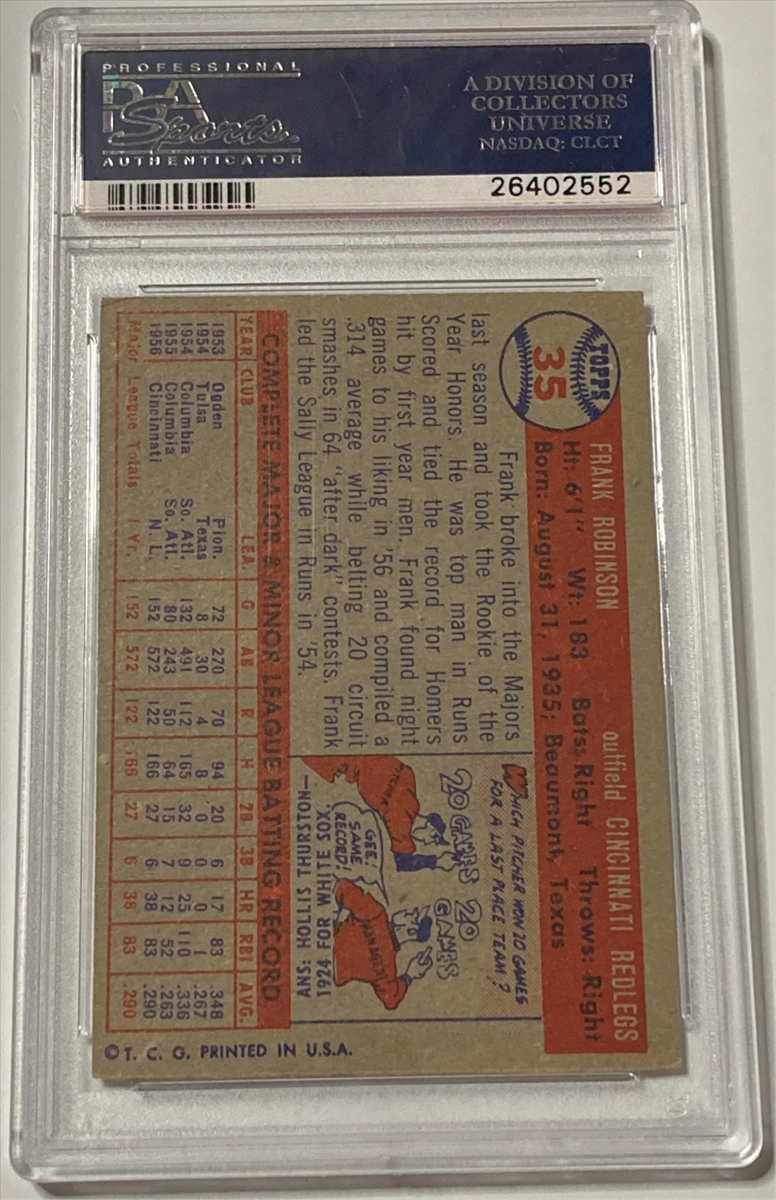 PROFESSIONAL
PSA
Sports
AUTHENTICATOR
A DIVISION OF
COLLECTORS
UNIVERSE
NASDAQ: CLCT
26402552
TOPPS
35
FRANK ROBINSON outfield CINCINNATI REDLEGS
Ht: 6'1" Wt: 183 Bats: Right Throws: Right
Born: August 31, 1935; Beaumont, Texas
Frank broke into the Majors
last season and took the Rookie of the
Year Honors. He was top man in Runs
Scored and tied the record for Homers
hit by first year men. Frank found night
games to his liking in '56 and compiled a
.314 average while belting 20 circuit
smashes in 64 "after dark" contests. Frank
led the Sally League in Runs in '54.
WHICH PITCHER WON 20 GAMES
FOR A LAST PLACE TEAM?
20 GAMES
20 GAMES
PITCHER
MANAGER
GEE!
SAME
RECORD!
ANS: HOLLIS THURSTON—
1924 FOR WHITE SOX.
COMPLETE MAJOR & MINOR LEAGUE BATTING RECORD
YEAR CLUB LEA. G AB R H 2B 3B HR RBI AVG.
1953 Ogden Pion. 72 270 70 94 20 6 17 83 .348
1954 Tulsa Texas 8 30 4 8 0 0 0 1 .267
1954 Columbia So. Atl. 132 491 112 165 32 9 25 110 .336
1955 Columbia So. Atl. 80 243 50 64 15 7 12 52 .263
1956 Cincinnati N. L. 152 572 122 166 27 6 38 83 .290
Major League Totals 1 Yr. 152 572 122 166 27 6 38 83 .290
© T. C. G. PRINTED IN U.S.A.